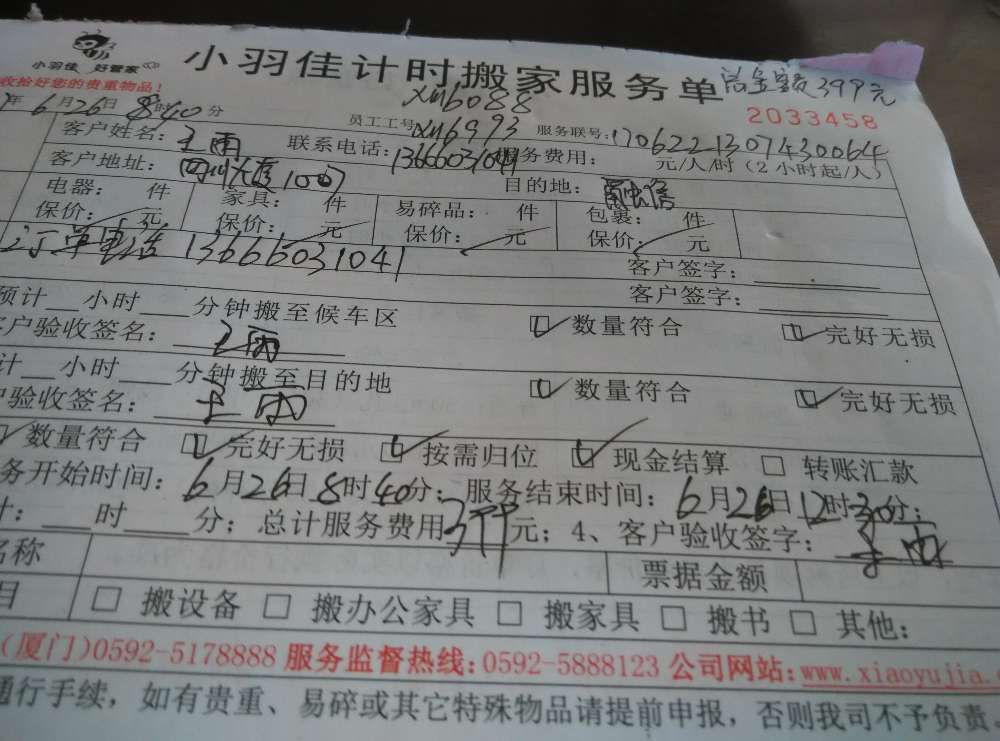 小羽佳 好管家
小羽佳计时搬家服务单 总金额399元
收拾好您的贵重物品！
xm6088
2033458
年6月26日8时40分 员工工号 xm6993 服务联号：1706221307430064
客户姓名：王雨 联系电话：13666031041 服务费用： 元/人/时（2小时起/人）
客户地址： 1007 目的地：
电器： 件 家具： 件 易碎品： 件 包裹： 件
保价： 元 保价： 元 保价： 元 保价： 元
订单电话 13666031041
客户签字：
客户签字：
预计 小时 分钟搬至候车区 数量符合 完好无损
客户验收签名：王雨
计 小时 分钟搬至目的地 数量符合 完好无损
户验收签名：王雨
数量符合 完好无损 按需归位 现金结算 转账汇款
务开始时间：6月26日8时40分；服务结束时间：6月26日12时30分；
计： 时 分；总计服务费用399元；4、客户验收签字：王雨
名称 票据金额
目 搬设备 搬办公家具 搬家具 搬书 其他：
（厦门）0592-5178888 服务监督热线：0592-5888123 公司网站：www.xiaoyujia.
通行手续，如有贵重、易碎或其它特殊物品请提前申报，否则我司不予负责。